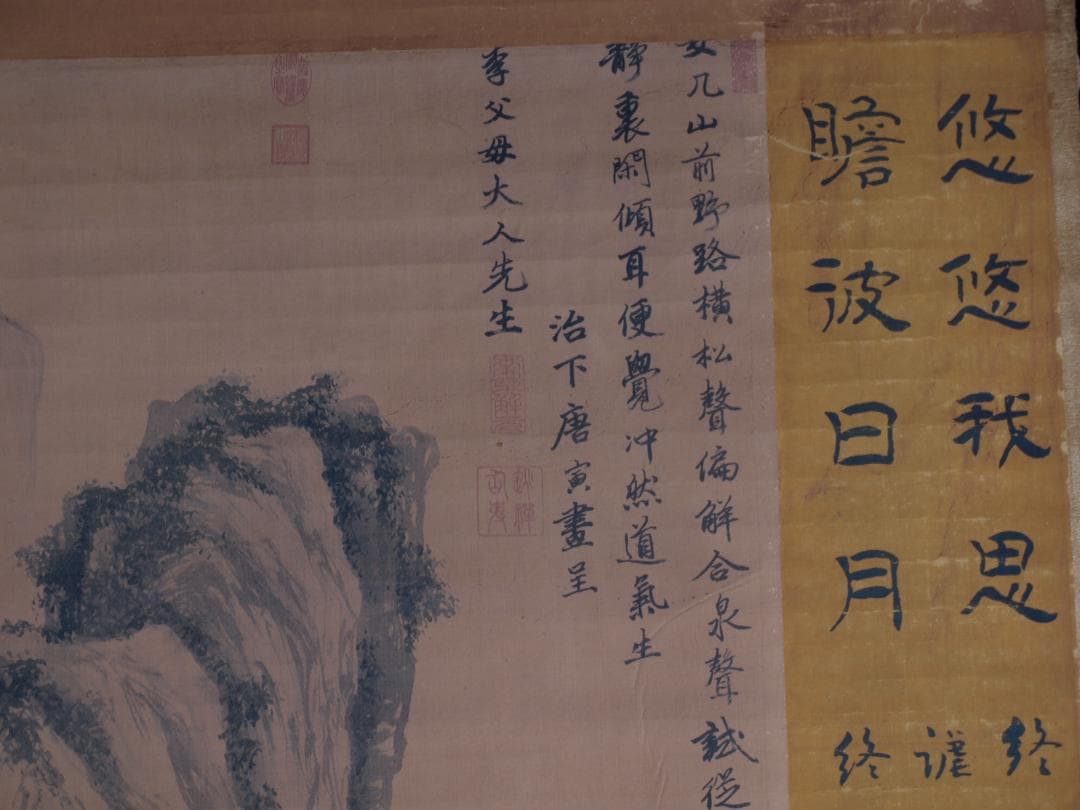 悠悠我思
瞻彼日月
女几山前野路橫松聲偏解合泉聲試從
靜裏閑傾耳便覺冲然道氣生
治下唐寅畫呈
李父母大人先生